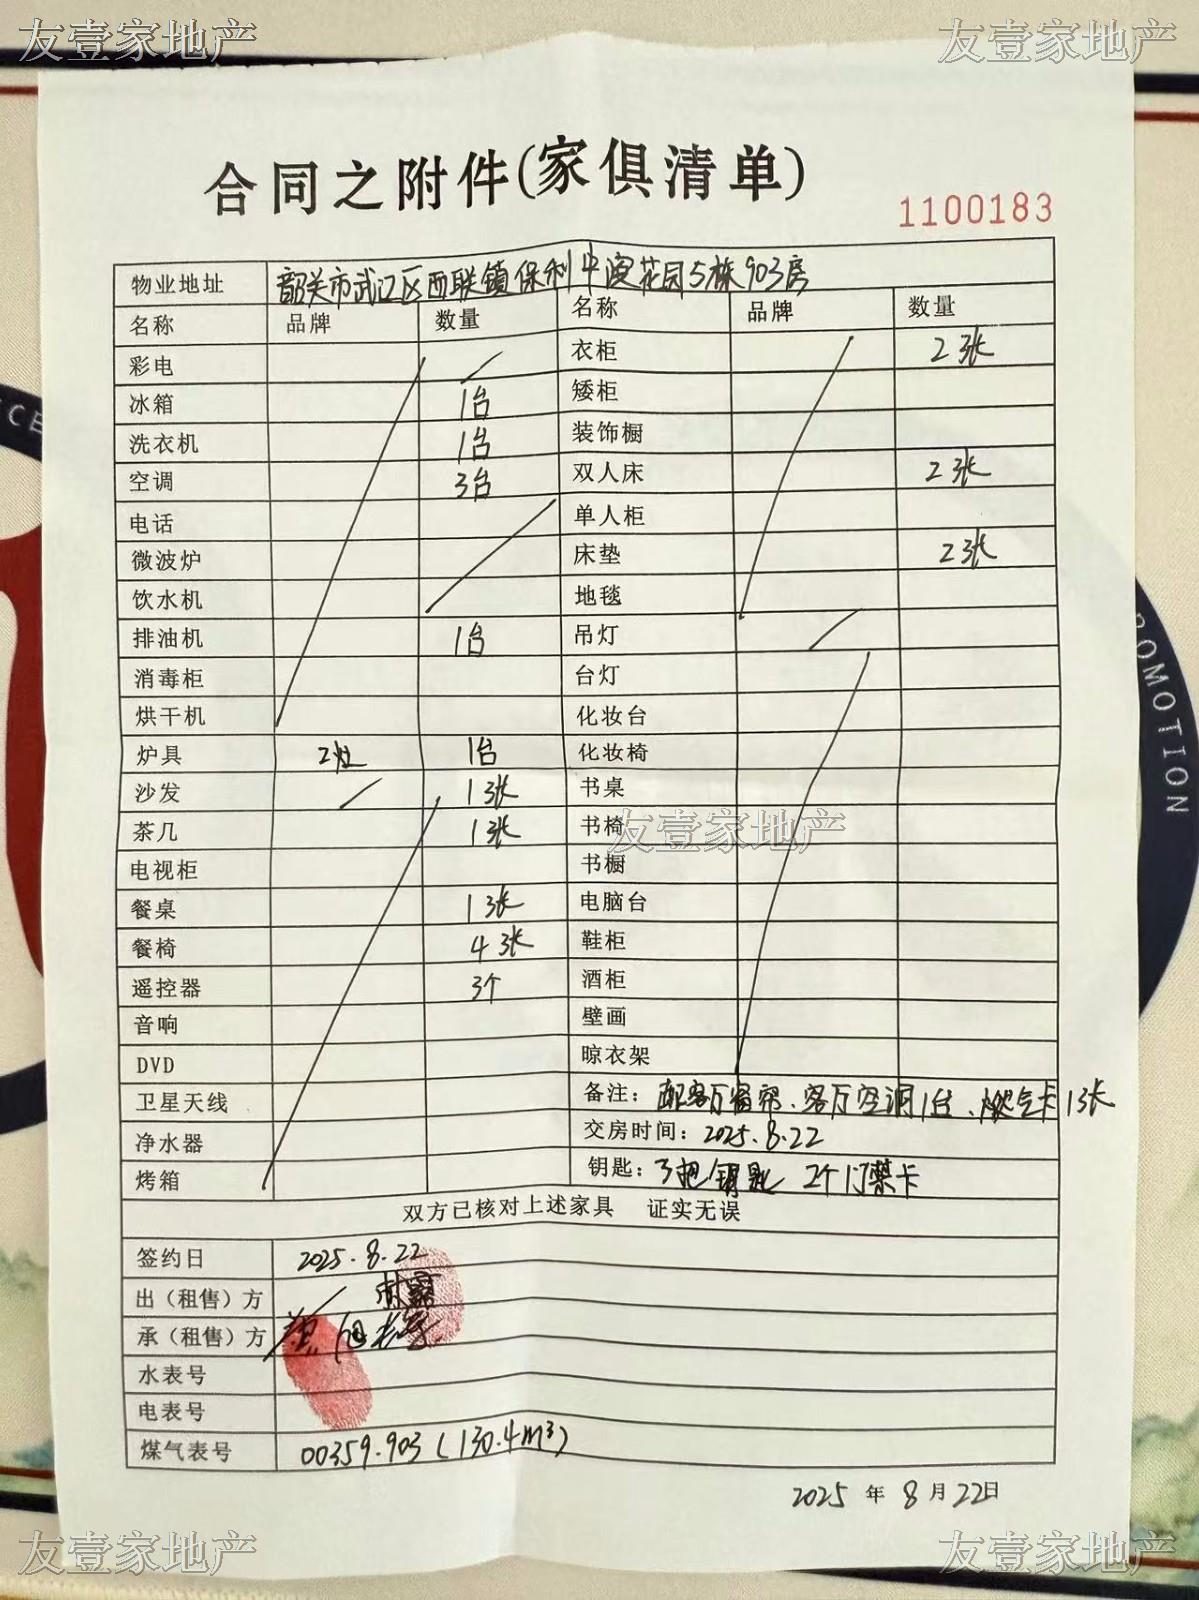 友壹家地产 友壹家地产
合同之附件(家俱清单)
1100183
物业地址 韶关市武江区西联镇保利中宸花园5栋903房
名称 品牌 数量 名称 品牌 数量
彩电 衣柜 2张
冰箱 1台 矮柜
洗衣机 1台 装饰橱
空调 3台 双人床 2张
电话 单人柜
微波炉 床垫 2张
饮水机 地毯
排油机 1台 吊灯
消毒柜 台灯
烘干机 化妆台
炉具 2灶 1台 化妆椅
沙发 1张 书桌
茶几 1张 书椅
友壹家地产
电视柜 书橱
餐桌 1张 电脑台
餐椅 4张 鞋柜
遥控器 3个 酒柜
音响 壁画
DVD 晾衣架
卫星天线 备注: 配客厅窗帘、客厅空调1台、燃气卡1张
净水器 交房时间: 2025.8.22
烤箱 钥匙: 3把钥匙 2个门禁卡
双方已核对上述家具 证实无误
签约日 2025.8.22
出（租售）方
承（租售）方
水表号
电表号
煤气表号 00359.903 (130.4m³)
2025 年 8 月 22日
友壹家地产 友壹家地产
CE
PROMOTION